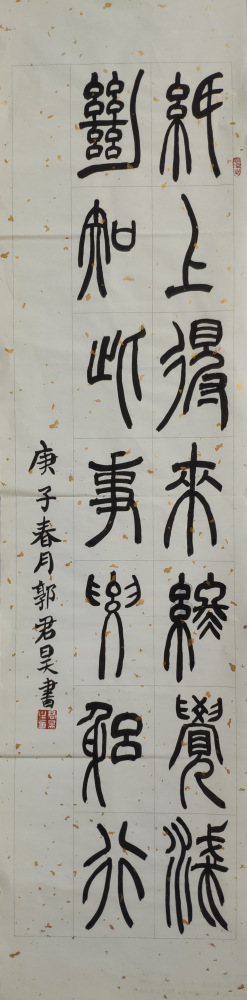 紙上得來終覺淺
絕知此事要躬行
庚子春月郭君昊書